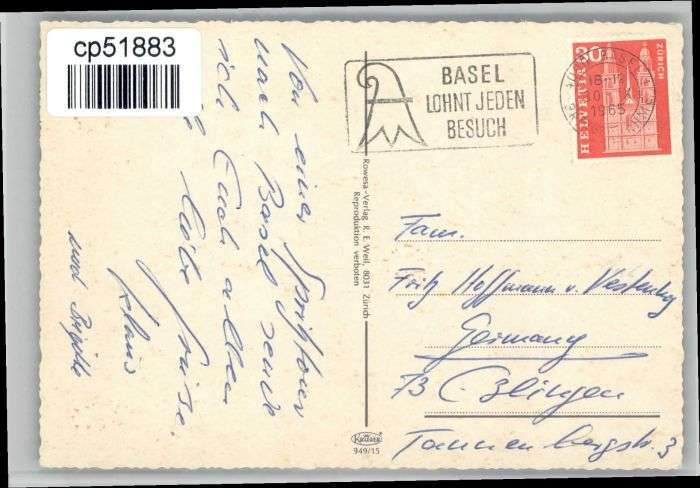 cp51883
Von einer Spritztour
nach Basel sende
ich Euch allen
liebe Grüsse.
Klaus
und Brigitte
Rowesa-Verlag R. E. Weil, 8031 Zürich
Reproduktion verboten
KRÜGER
949/15
BASEL
LOHNT JEDEN
BESUCH
30
HELVETIA
ZÜRICH
1965
Fam.
Fritz Hoffmann v. Vestenberg
Germany
73 Esslingen
Tannenbergstr. 3